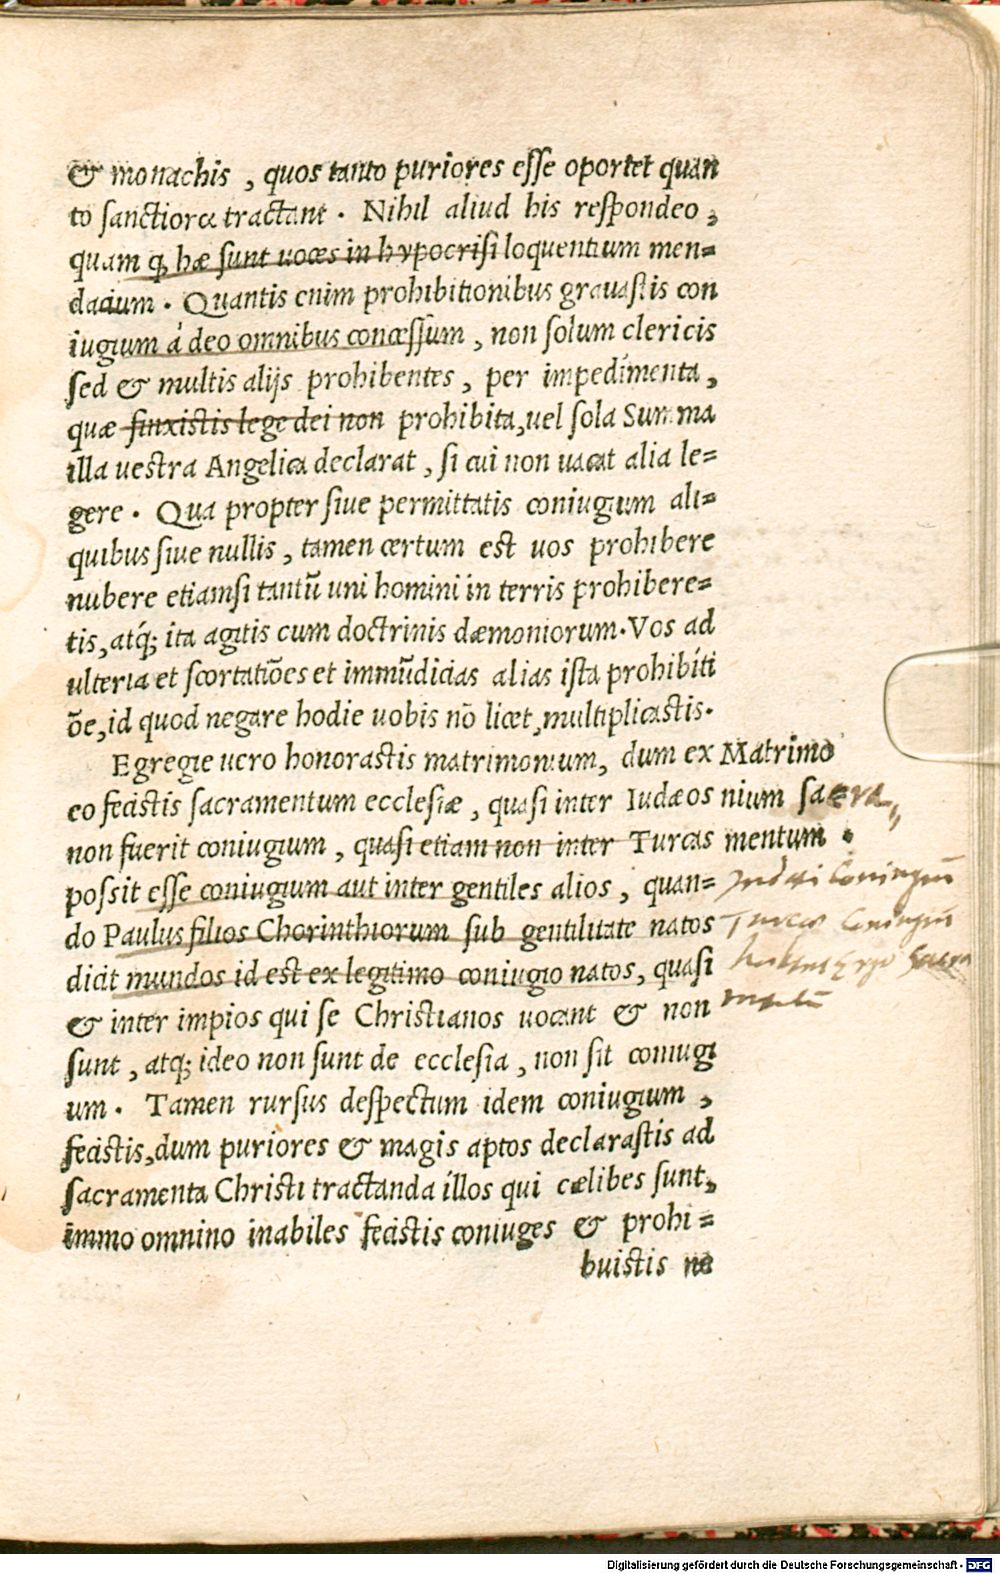 & monachis , quos tanto puriores esse oportet quan
to sanctiora tractant . Nihil aliud his respondeo ,
quam ꝙ hæ sunt uoces in hypocrisi loquentium men=
dacium . Quantis enim prohibitionibus grauastis con
iugium á deo omnibus concessum , non solum clericis
sed & multis alijs prohibentes , per impedimenta ,
quæ finxistis lege dei non prohibita, uel sola Summa
illa uestra Angelica declarat , si cui non uacat alia le=
gere . Qua propter siue permittatis coniugium ali=
quibus siue nullis , tamen certum est uos prohibere
nubere etiamsi tantũ uni homini in terris prohibere=
tis, atq́; ita agitis cum doctrinis dæmoniorum. Vos ad
ulteria et scortatiões et immũdicias alias ista prohibiti
õe, id quod negare hodie uobis nõ licet, multiplicastis.
Egregie uero honorastis matrimonium, dum ex
eo fecistis sacramentum ecclesiæ , quasi inter Iudæos
non fuerit coniugium , quasi etiam non inter Turcas
possit esse coniugium aut inter gentiles alios , quan=
do Paulus filios Chorinthiorum sub gentilitate natos
dicit mundos id est ex legitimo coniugio natos, quasi
& inter impios qui se Christianos uocant & non
sunt , atq; ideo non sunt de ecclesia , non sit coniugi
um . Tamen rursus despectum idem coniugium ,
fecistis, dum puriores & magis aptos declarastis ad
sacramenta Christi tractanda illos qui cælibes sunt,
immo omnino inabiles fecistis coniuges & prohi=
buistis ne
Matrimo
nium sacra=
mentum .
Iudæi Coniugiũ
Turcæ Coniugiũ
habent Ergo Sacra
mentũ
Digitalisierung gefördert durch die Deutsche Forschungsgemeinschaft - DFG